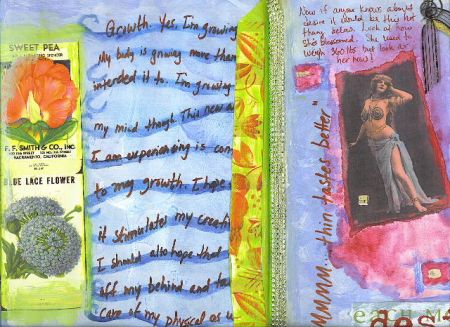 SWEET PEA
F. F. SMITH & CO., INC.
SACRAMENTO, CALIFORNIA
BLUE LACE FLOWER
Growth. Yes, I'm growing
My body is growing more than
intended it to. I'm growing
my mind though. This new
I am experiencing is
to my growth. I hope
it stimulates my
I should also hope that
off my behind and
care of my physical as
Now if anyone knows about
desire it would be this hot
thang below. Look at how
she's blossomed. She used to
weigh 360 lbs but look at
her now!
Mmmm... thin tastes better"
each M
das